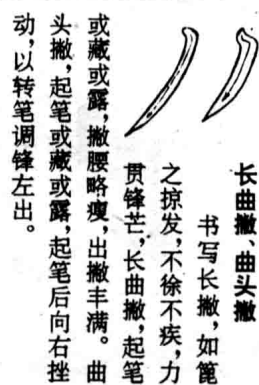 长曲撇、曲头撇
书写长撇，如篦
之掠发，不徐不疾，力
贯锋芒，长曲撇，起笔
或藏或露，撇腰略瘦，出撇丰满。曲
头撇，起笔或藏或露，起笔后向右挫
动，以转笔调锋左出。